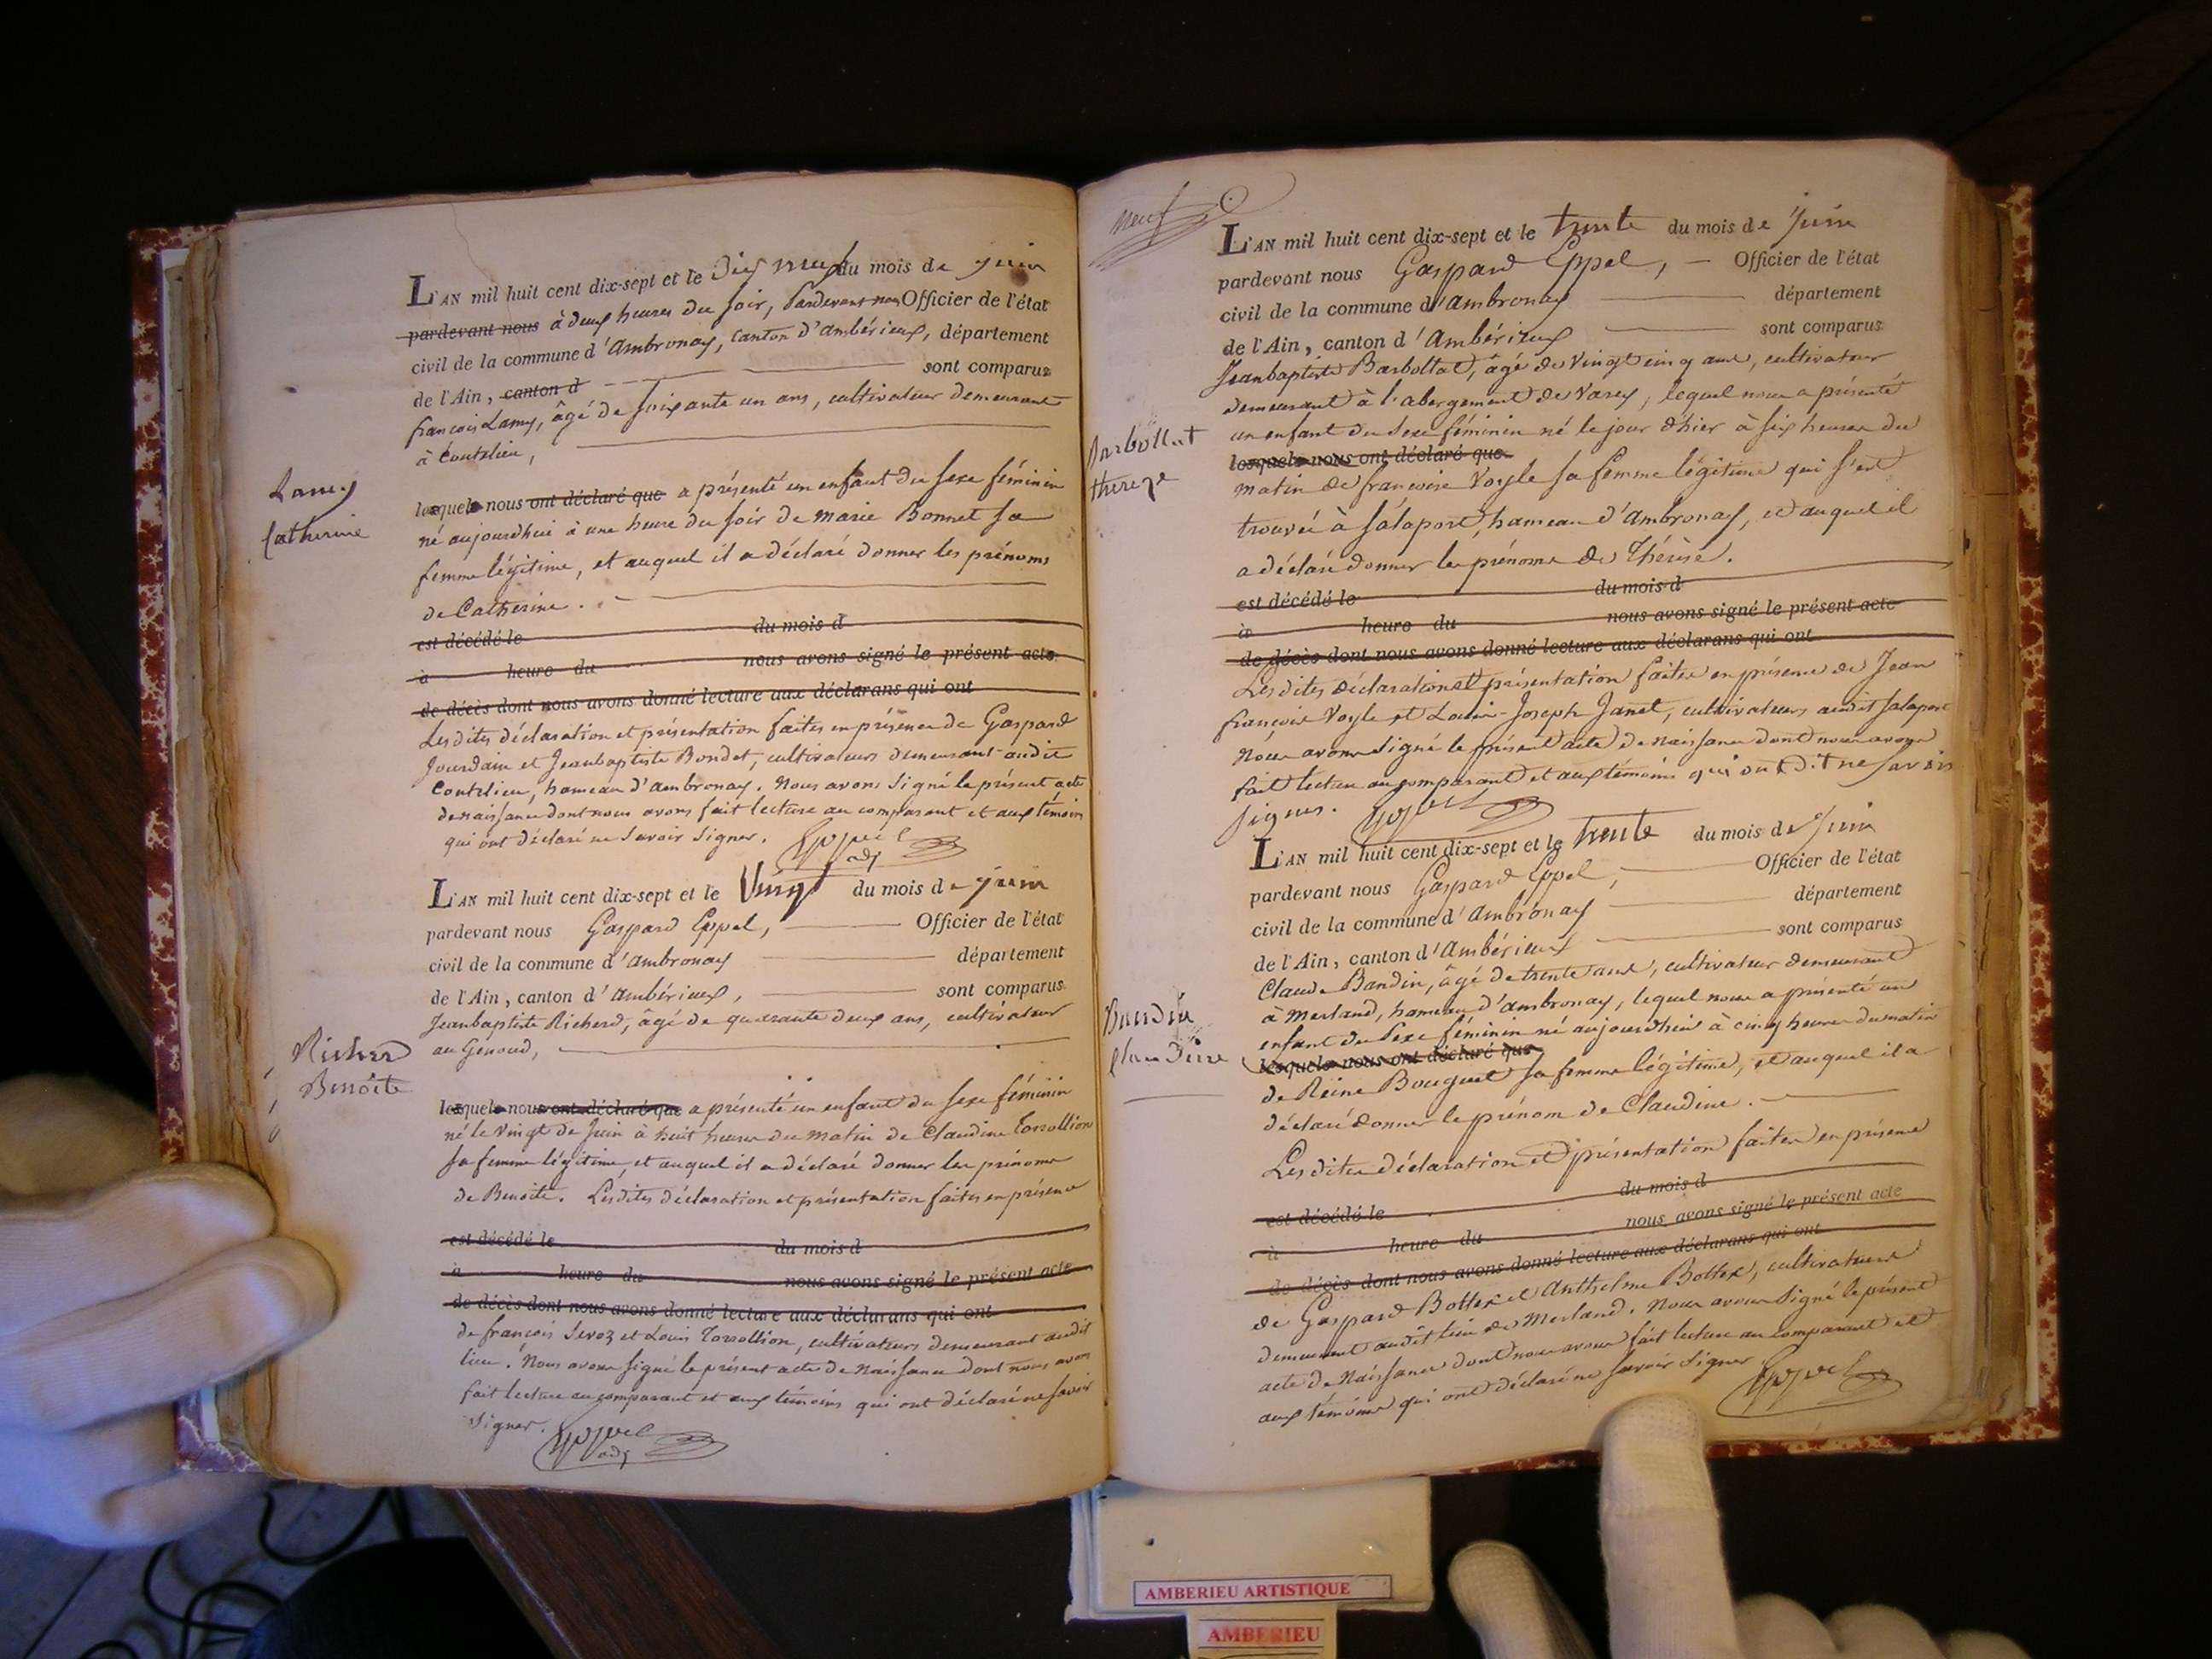 Lamy
Catherine
L'AN mil huit cent dix-sept et le Dix neuf du mois de juin
pardevant nous à deux heures du soir, Pardevant nous Officier de l'état
civil de la commune d'Ambronay, Canton d'ambérieux, département
de l'Ain, canton d sont comparus
françois Lamy, âgé de soixante un ans, cultivateur demeurant
à Coutelieu,
lesquels nous ont déclaré que a présenté un enfant du sexe féminin
né aujourdhui à une heure du soir de marie Bonnet sa
femme légitime, et auquel il a déclaré donner les prénoms
de Catherine.
est décédé le du mois d
à heure du nous avons signé le présent acte
de décès dont nous avons donné lecture aux déclarans qui ont
Les dites déclaration et présentation faites en présence de Gaspard
Jourdain et Jeanbaptiste Bondet, cultivateurs demeurant audit
Coutelieu, hameau d'ambronay. Nous avons signé le présent acte
de naissance dont nous avons fait lecture au comparant et aux témoins
qui ont déclaré ne savoir signer. Eppel
adj
Richerd
Benoite
L'AN mil huit cent dix-sept et le Vingt du mois de juin
pardevant nous Gaspard Eppel, Officier de l'état
civil de la commune d'ambronay département
de l'Ain, canton d'ambérieux, sont comparus
Jeanbaptiste Richerd, âgé de quarante deux ans, cultivateur
au Genoud,
lesquels nous ont déclaré que a présenté un enfant du sexe féminin
né le Vingt de Juin à huit heures du matin de Claudine Torollion
sa femme légitime, et auquel il a déclaré donner les prénoms
de Benoite. Les dites déclaration et présentation faites en présence
est décédé le du mois d
à heure du nous avons signé le présent acte
de décès dont nous avons donné lecture aux déclarans qui ont
de françois Servoz et Louis Torollion, cultivateurs demeurant audit
lieu. Nous avons signé le présent acte de Naissance dont nous avons
fait lecture au comparant et aux témoins qui ont déclaré ne savoir
signer. Eppel
adj
neuf
Barbollat
thereze
L'AN mil huit cent dix-sept et le trente du mois de Juin
pardevant nous Gaspard Eppel, Officier de l'état
civil de la commune d'Ambronay département
de l'Ain, canton d'Ambérieux sont comparus
Jeanbaptiste Barbollat, âgé de Vingt cinq ans, cultivateur
demeurant à l'abergement de Varey, lequel nous a présenté
un enfant du sexe féminin né le jour d'hier à six heures du
lesquels nous ont déclaré que
matin de francoise Voyle sa femme légitime qui s'est
trouvée à salaport, hameau d'Ambronay, et auquel il
a déclaré donner les prénoms de Thérèse.
est décédé le du mois d
à heure du nous avons signé le présent acte
de décès dont nous avons donné lecture aux déclarans qui ont
Les dites déclaration et présentation faites en présence de Jean
françois Voyle et Louis-Joseph Janet, cultivateurs audit salaport
Nous avons signé le présent acte de naissance dont nous avons
fait lecture au comparant et aux témoins qui ont dit ne savoir
signer. Eppel
Bandin
Claudine
L'AN mil huit cent dix-sept et le trente du mois de Juin
pardevant nous Gaspard Eppel, Officier de l'état
civil de la commune d'Ambronay département
de l'Ain, canton d'Ambérieux sont comparus
Claude Bandin, âgé de trente ans, cultivateur demeurant
à Merland, hameau d'ambronay, lequel nous a présenté un
enfant du sexe féminin né aujourdhui à cinq heures du matin
lesquels nous ont déclaré que
de Reine Bouquet sa femme légitime, et auquel il a
déclaré donner le prénom de Claudine.
Les dites déclaration et présentation faites en présence
est décédé le du mois d
à heure du nous avons signé le présent acte
de décès dont nous avons donné lecture aux déclarans qui ont
de Gaspard Bottex et Anthelme Bottex, cultivateurs
demeurant audit lieu de Merland. Nous avons signé le présent
acte de Naissance dont nous avons fait lecture au comparant et
aux témoins qui ont déclaré ne savoir signer Eppel
AMBERIEU ARTISTIQUE
AMBERIEU